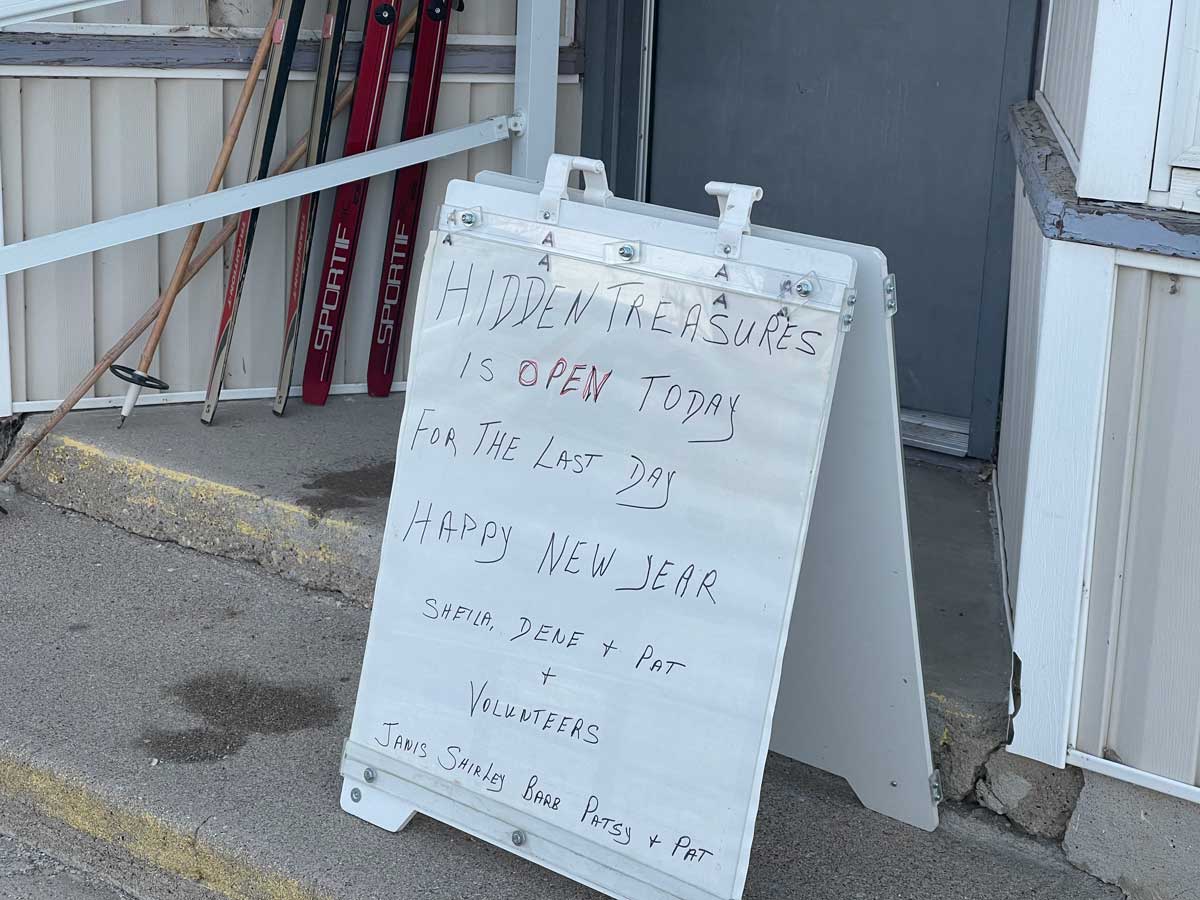 SPORTIF
SPORTIF
A A A A
A A A A
HIDDEN TREASURES
IS OPEN TODAY
FOR THE LAST DAY
HAPPY NEW YEAR
SHEILA, DENE + PAT
+
VOLUNTEERS
JANIS SHIRLEY BARB PATSY + PAT